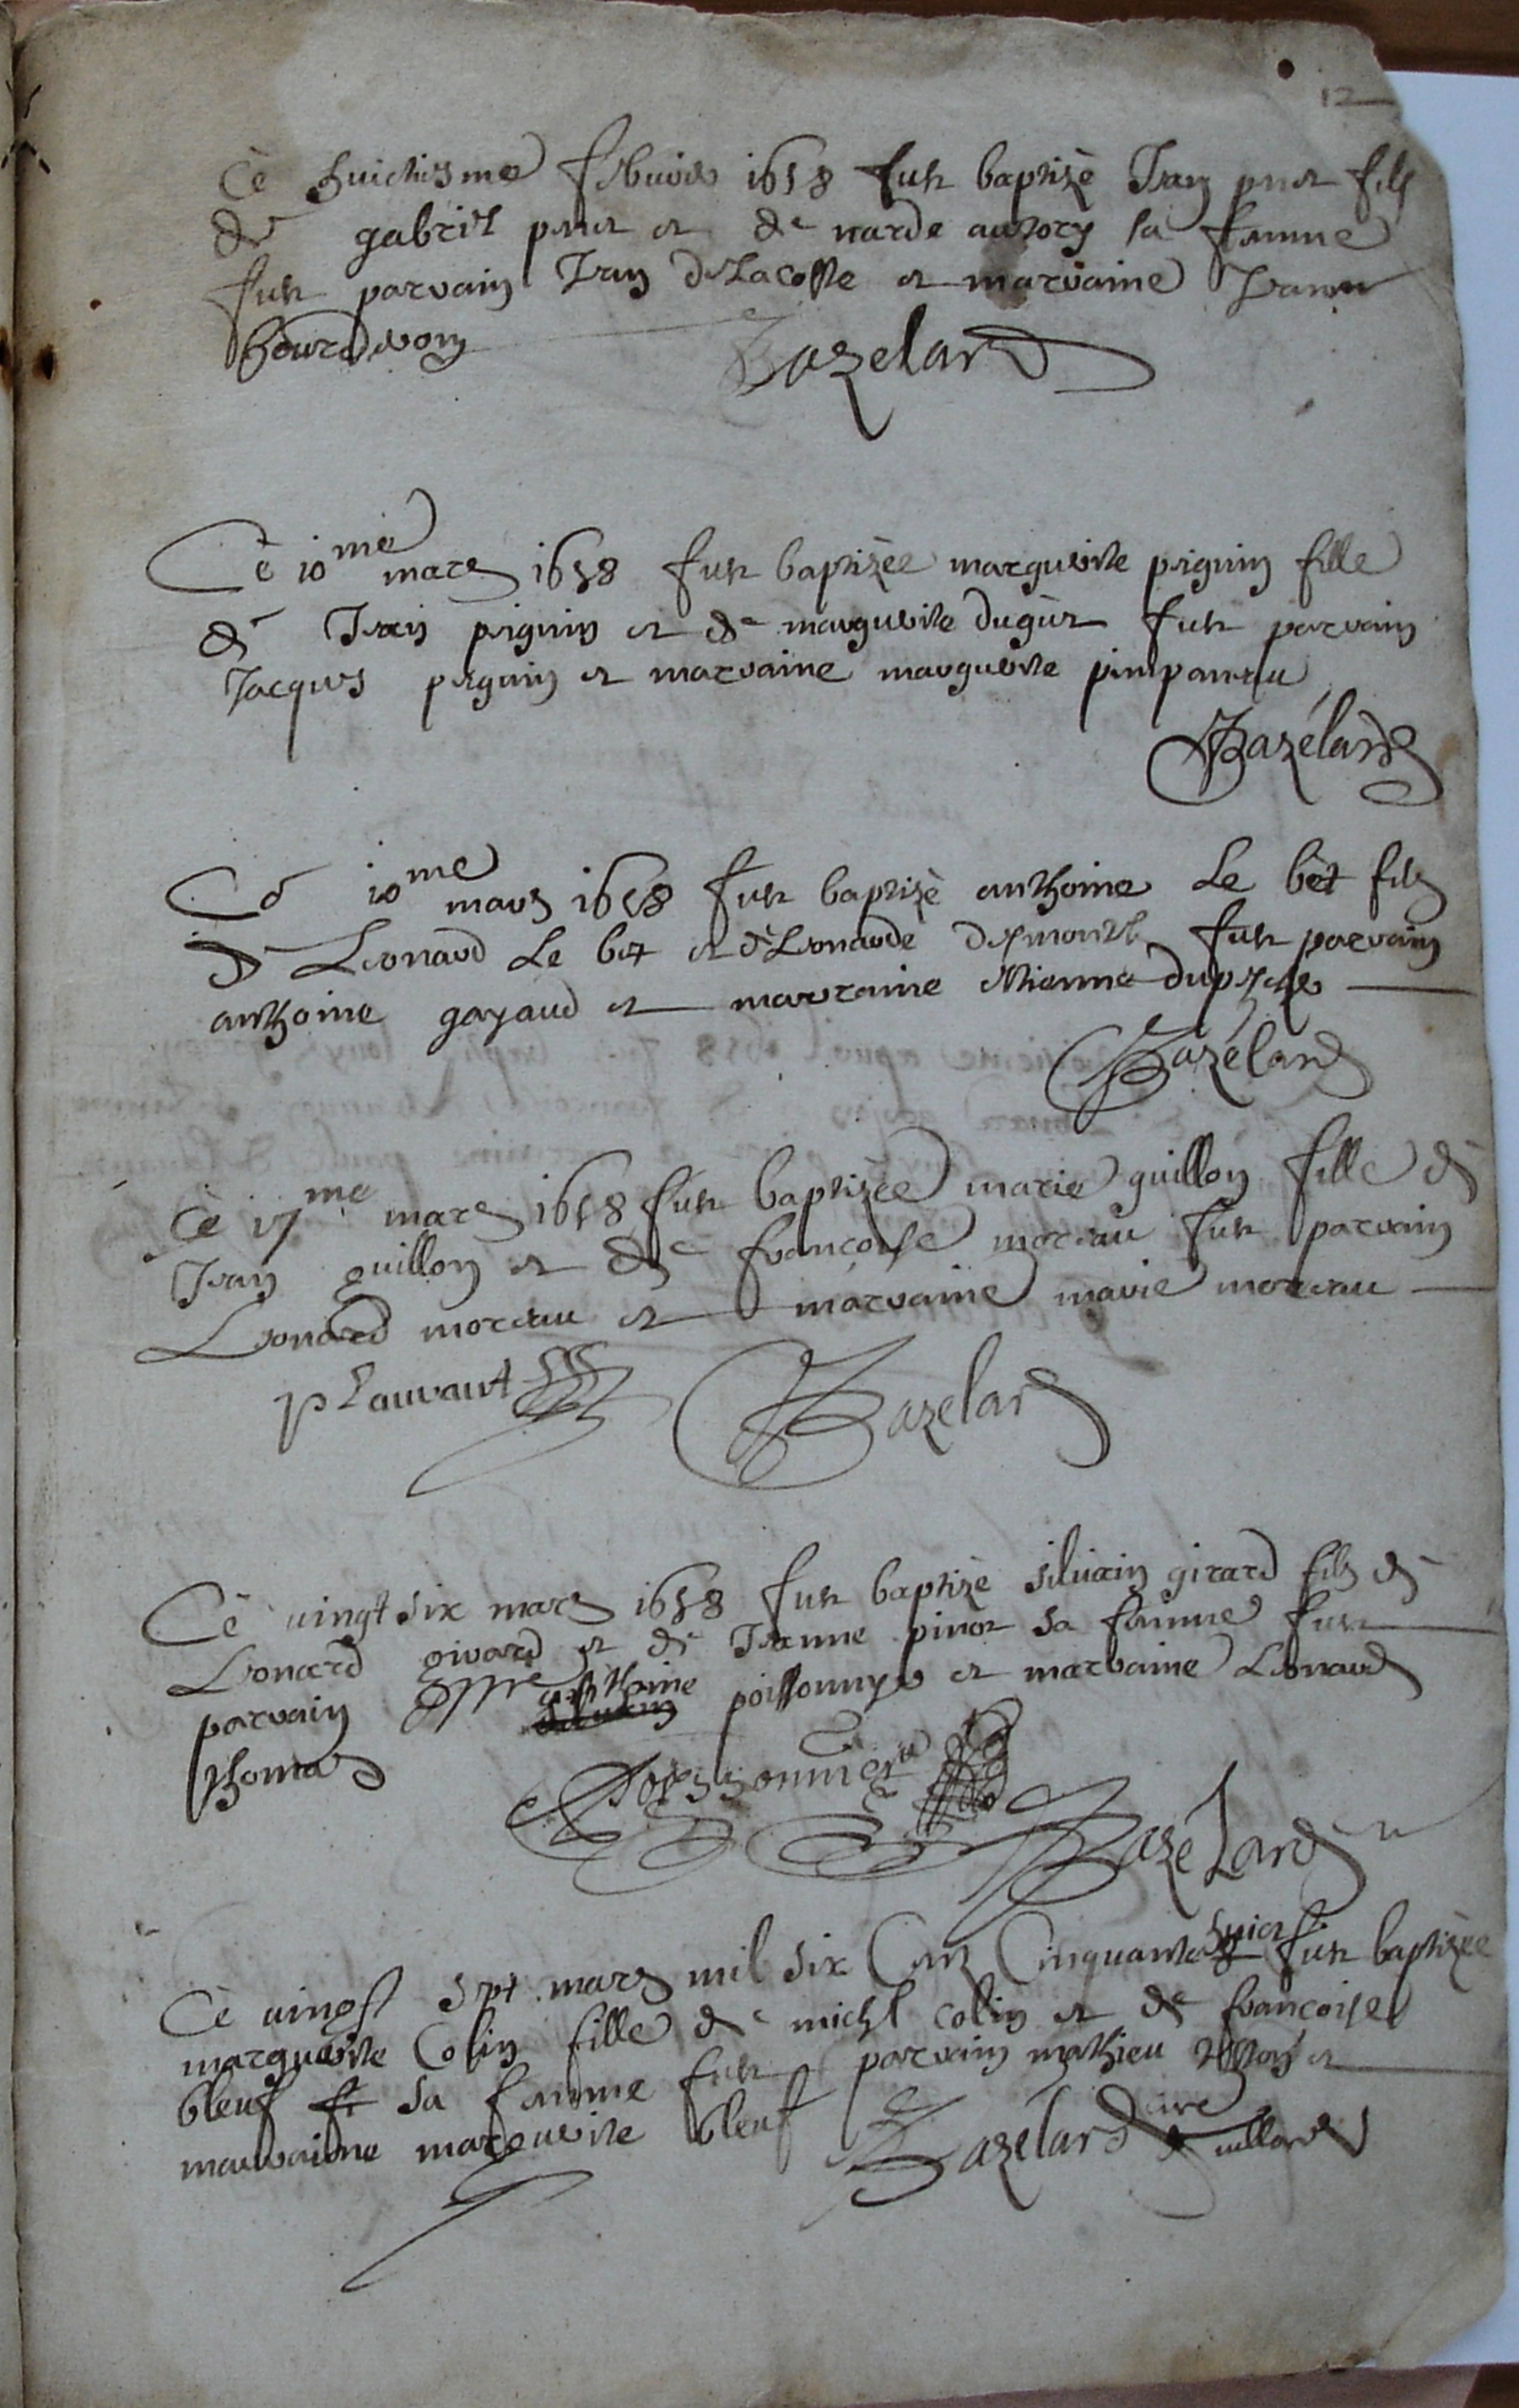 12
Cè huictiesme febvrier 1658 fut baptizè Jean fils
de gabriel et de narde sa femme
fut parvain Jean delacoste et marvaine Jeanne
Bazelard
Cè 10me mars 1658 fut baptizèe marguerite peguin fille
de Jean peguin et de marguerite dugèt fut parvain
Jacques peguin et marvaine marguerite pimpaneau
Bazélard
Cè 10me mars 1658 fut baptizè anthoine Le bèt fils
de Leonard Le bet et de Leonarde fut parvain
anthoine gayaud et marraine etienne
Bazélard
Cè 17me mars 1658 fut baptizèe marie guillon fille de
Jean guillon et de françoise moreau fut parvain
Leonard moreau et marvaine marie moreau
Bazelard
Cè vingt six mars 1658 fut baptizè silvain girard fils de
Leonard girard et de Jeanne pinot sa femme fut
parvain anthoine poissonnyer et marvaine Leonard
thomas
Poyssonnier
Bazélard
Cè vingt sept mars mil six Cent Cinquante huict fut baptizèe
marguerite Colin fille de michel colin et de francoise
bleuf sa femme fut parvain mathieu et
marvaine marguerite bleuf
Bazélard curé